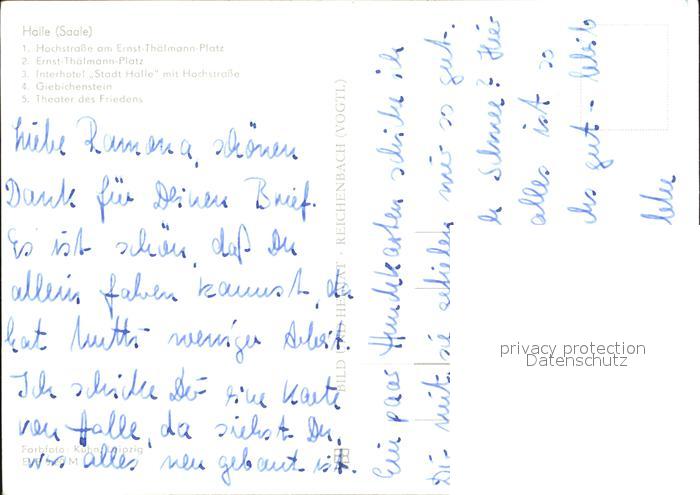 Halle (Saale)
1. Hochstraße am Ernst-Thälmann-Platz
2. Ernst-Thälmann-Platz
3. Interhotel „Stadt Halle" mit Hochstraße
4. Giebichenstein
5. Theater des Friedens
Liebe Ramona, schönen
Dank für Deinen Brief.
Es ist schön, daß Du
allein fahren kannst, da
hat Mutti weniger Arbeit.
Ich schicke Dir eine Karte
von Halle, da siehst Du,
was alles neu gebaut ist.
Farbfoto: Kühn, Leipzig
BILD UND HEIMAT · REICHENBACH (VOGTL.)
Ein paar Hundekarten schicke ich
Dir mit. sie gefielen mir so gut.
Schnee? Hier
alles ist so
gut - 
privacy protection
Datenschutz